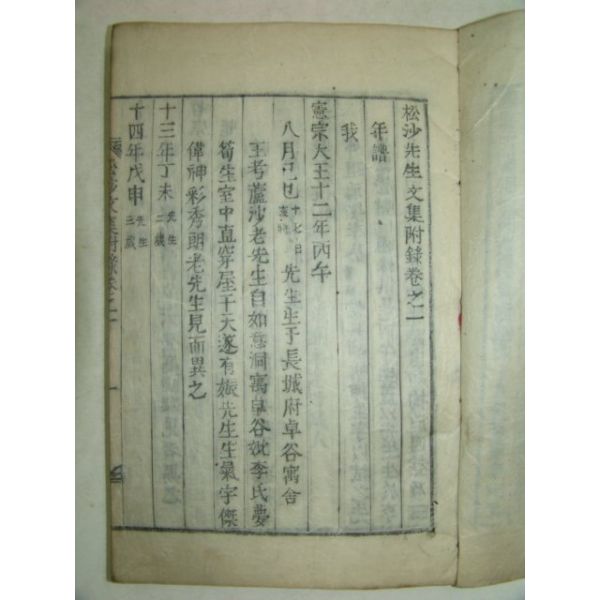 松沙先生文集附錄卷之二
年譜
我
憲宗大王十二年丙午
八月己巳十七日 先生生于長城府卓谷寓舍
王考蘆沙老先生自如意洞寓卓谷妣李氏夢
筍生室中直穿屋干天遂有娠先生生氣宇傑
偉神彩秀朗老先生見而異之
十三年丁未先生二歲
十四年戊申先生三歲
松沙文集附錄卷之二 一